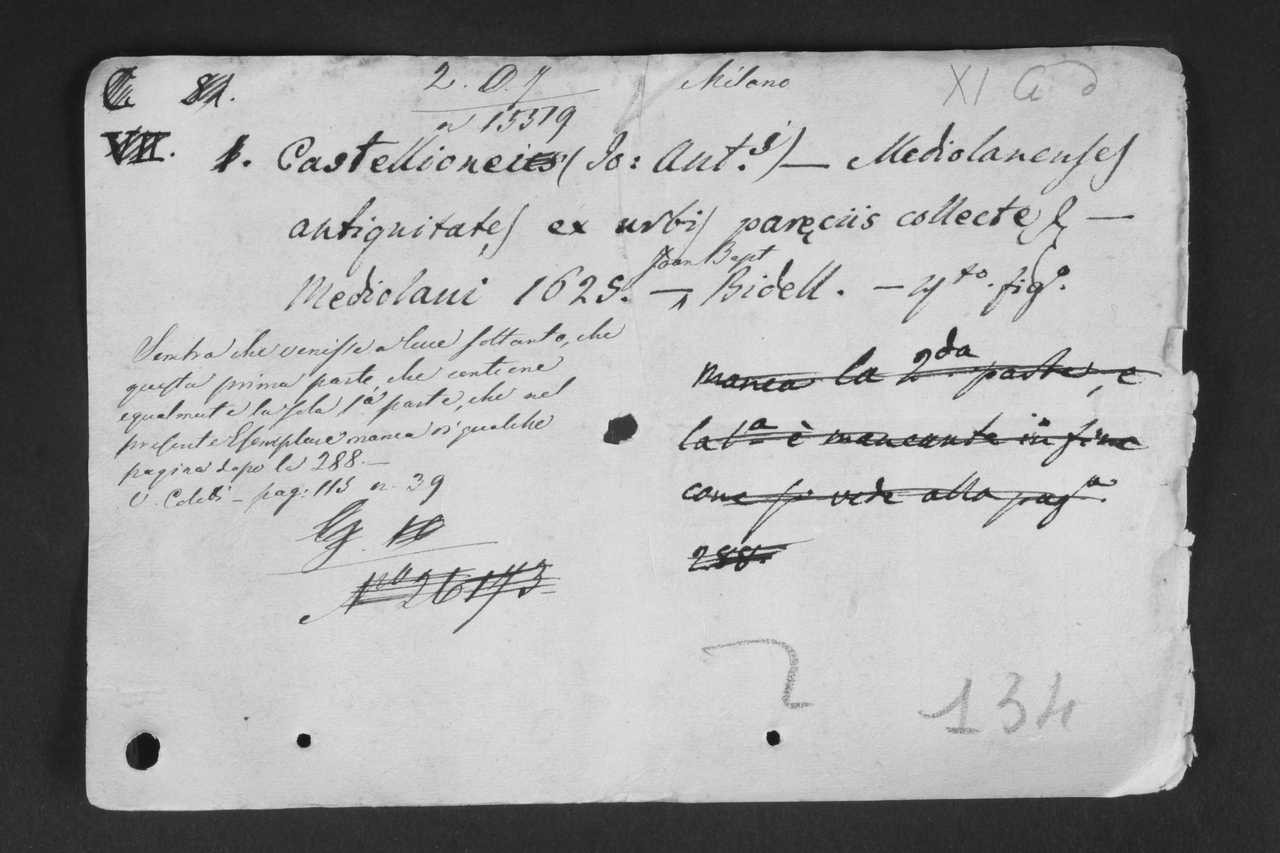 C. 81. 2. O. 7 Milano XI G
VII. n 15519
1. Castellioneus (Jo: Ant.s) — Mediolanenses
antiquitates ex urbis paręciis collectę &
Joan Bapt
Mediolani 1625. — Bidell. — 4to. figo.
Sembra che venisse a luce soltanto, che
questa prima parte, che contiene
egualmente la sola 1a parte, che nel
presente Esemplare manca di qualche
pagina dopo la 288.—
V. Coleti — pag: 115 n. 39
manca la 2da parte, e
la 1a è mancante in fine
come si vede alla paga.
288.
G. 10
No 26173
2
134